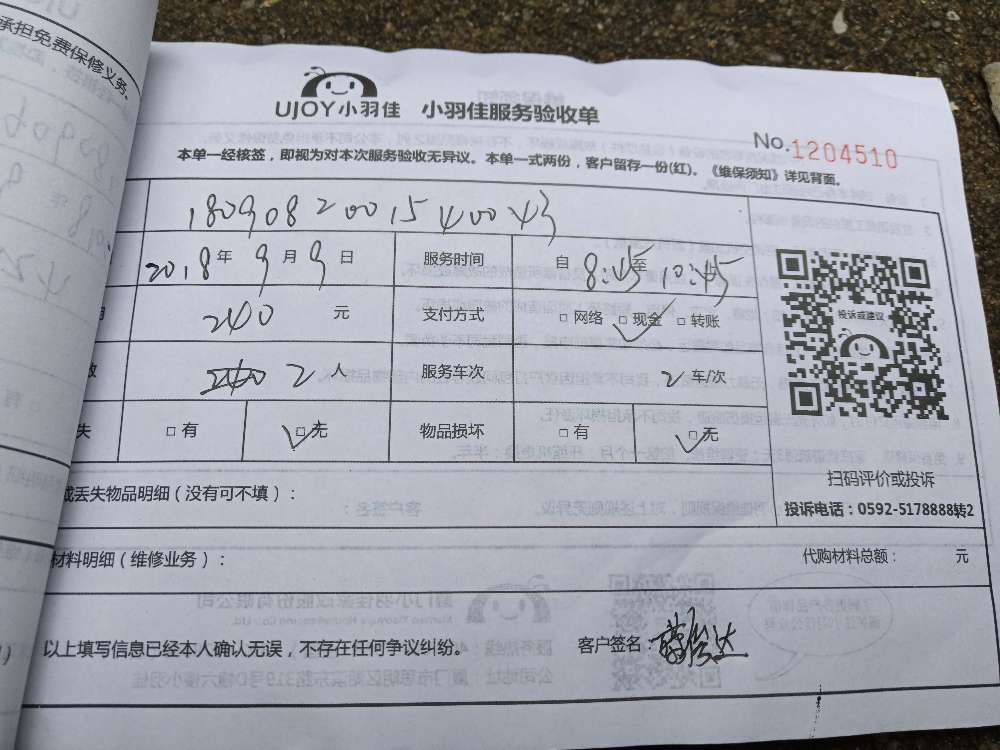 承担免费保修义务。
UJOY小羽佳 小羽佳服务验收单
No.1204510
本单一经核签，即视为对本次服务验收无异议。本单一式两份，客户留存一份(红)。《维保须知》详见背面。
1809082001540043
2018年9月9日 服务时间 自8:45至10:45
240元 支付方式 □网络 □现金 □转账
投诉或建议
数 2人 服务车次 2车/次
失 □有 □无 物品损坏 □有 □无
扫码评价或投诉
或丢失物品明细（没有可不填）：
投诉电话：0592-5178888转2
材料明细（维修业务）： 代购材料总额： 元
以上填写信息已经本人确认无误，不存在任何争议纠纷。 客户签名：